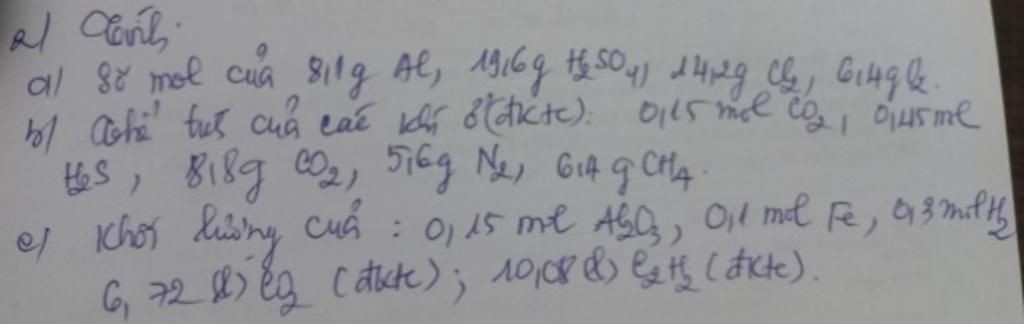 2/ Tính:
a/ Số mol của 8,1g Al, 19,6g H₂SO₄, 14,2g Cl₂, 6,4g O₂.
b/ Thể tích của các khí ở (đktc): 0,15 mol CO₂, 0,45 mol
H₂S, 8,8g CO₂, 5,6g N₂, 6,4g CH₄.
c/ Khối lượng của: 0,15 mol Al₂O₃, 0,1 mol Fe, 0,3 mol H₂
6,72 (l) CO₂ (đktc); 10,08 (l) C₂H₂ (đktc).